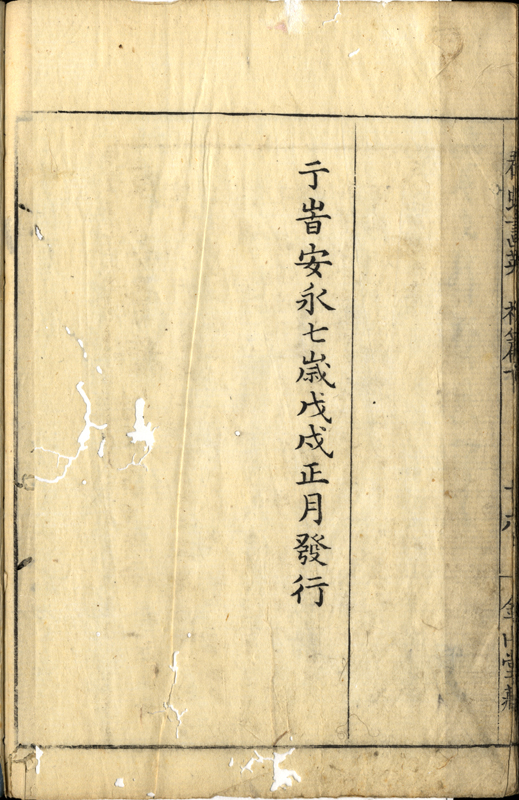 于旹安永七歳戊戌正月發行
十六